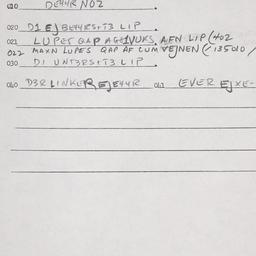 010 DEHHR NO2.
020 D1 EJ BEHHRSIT3 LIP.
021 LUPES QAP AGE1VUKS, AFN LIP (402
022 MAXN LUPES QAP AF CUM VEJNEN (135010/
030 D1 UNT3RSIT3 LIP.
040 D3R LINKER EJEHHR 041 (EVER EJ XE-